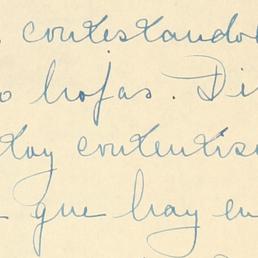 contestandol
o hojas. Di
toy contentis
que hay en